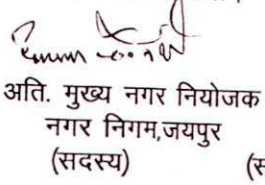 अति. मुख्य नगर नियोजक
नगर निगम,जयपुर
(सदस्य) (स